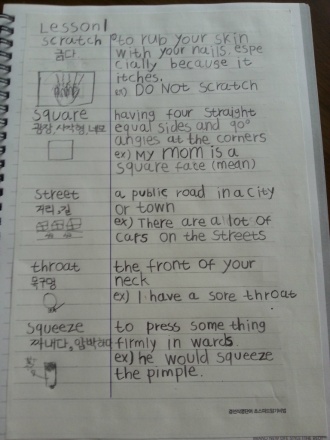 Lesson1
scratch to rub your skin
긁다 with your nails. espe
cially because it
itches.
ex) DO NOt scratch
square having four straight
광장, 사각형, 네모 equal sides and 90°
angles at the corners
ex) My mom is a
square fate (mean)
street a public road in a city
거리, 길 or town
ex) There are a lot of
cars on the streets
throat the front of your
목구멍 neck
ex) I have a sore throat
squeeze to press some thing
짜내다, firmly in wards
ex) he would squeeze
the pimple.